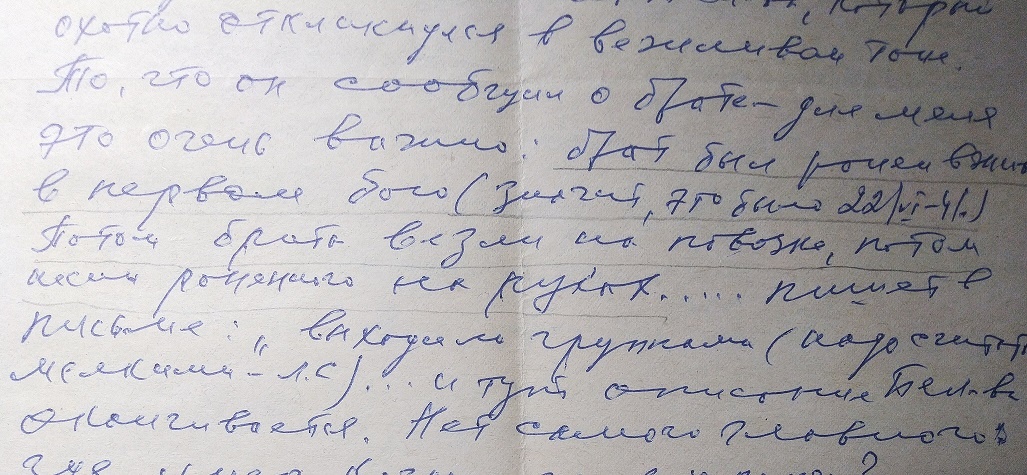 который
охотно откликнулся в вежливом тоне.
То, что он сообщил о брате – для меня
это очень важно: брат был ранен
в первом бою (значит, это было 22/VI-41.)
Потом брата везли на повозке, потом
несли раненного на руках..... пишет в
письме: „выходили группами (надо считать
мелкими – Л.С.)... и тут описание Бел-ва
оканчивается. Нет самого главного: